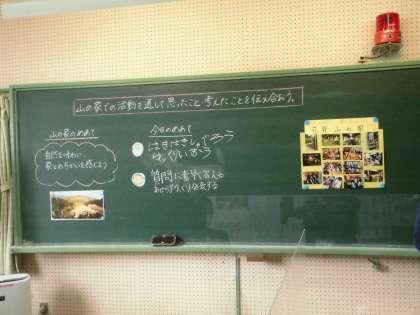 山の家での活動を通して思ったこと考えたことを伝え合おう。
山の家のめあて
自然を味わい
家とのちがいを感じよう
今日のめあて
はきはきしゃべろう
ゆっくり言おう
質問に素早く答える
ゆっくり発表する
山の家